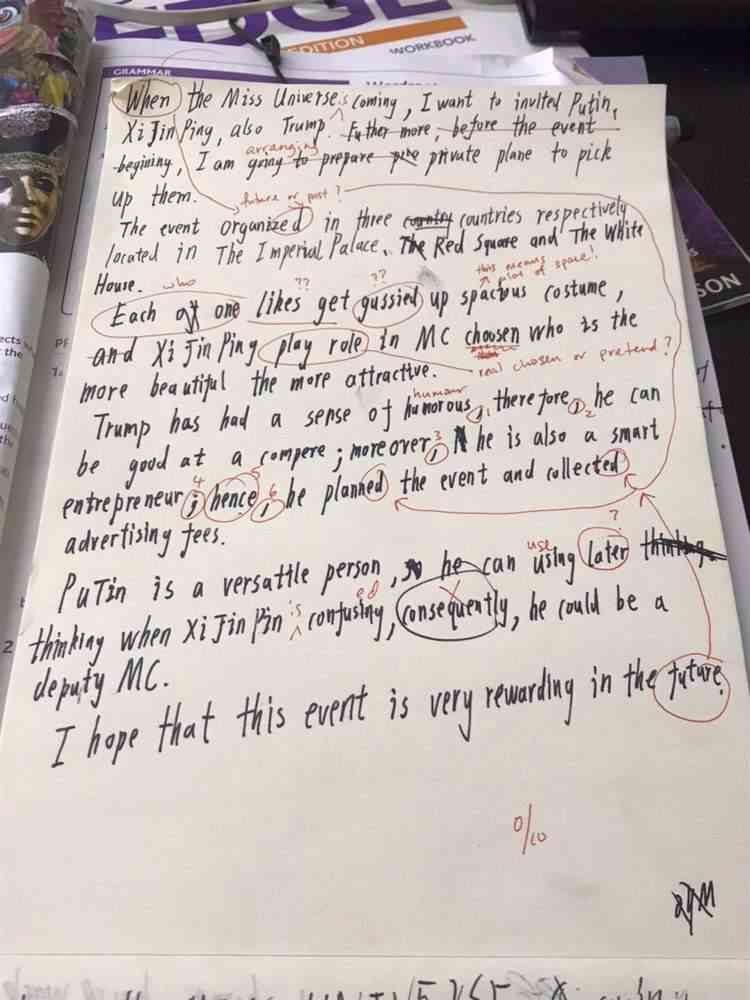 EDGE
EDITION
WORKBOOK
GRAMMAR
When the Miss Universe is coming, I want to invited Putin,
Xi Jin Ping, also Trump. Futher more, before the event
arranging
begining, I am going to prepare private plane to pick
up them.
future or past?
The event organized in three country countries respectively
located in The Imperial Palace, The Red Square and The White
House.
this means plot of space!
who ?? ??
Each of one likes get gussied up spacious costume,
and Xi Jin Ping play role in MC choosen who is the
real chosen or pretend?
more beautiful the more attractive.
humour
Trump has had a sense of humorous, 1 therefore, 2 he can
be good at a compere; moreover, 3 he is also a smart
4 5 6
entrepreneur; hence, he planned the event and collected
advertising fees.
use ?
PuTin is a versattle person, so he can using later thinking
ed
thinking when Xi Jin Pin is confusing, consequently, he could be a
deputy MC.
I hope that this event is very rewarding in the future.
0/10